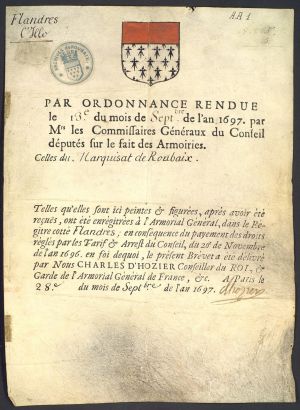 Flandres
C.lle
AA 1
PAR ORDONNANCE RENDUE
le 13e du mois de Septbre de l'an 1697. par
Mrs les Commissaires Généraux du Conseil
députés sur le fait des Armoiries.
Celles du Marquisat de Roubaix.
Telles qu'elles sont ici peintes & figurées, après avoir été
reçues, ont été enrégitrées à l'Armorial Général, dans le Ré-
gitre cotté Flandres, en conséquence du payement des droits
réglés par les Tarif & Arrest du Conseil, du 20e de Novembre
de l'an 1696. en foi dequoi, le présent Brévet a été délivré
par Nous CHARLES D'HOZIER Conseiller du ROI, &
Garde de l'Armorial Général de France, &c. A Paris le
28e du mois de Septbre de l'an 1697. d'hozier